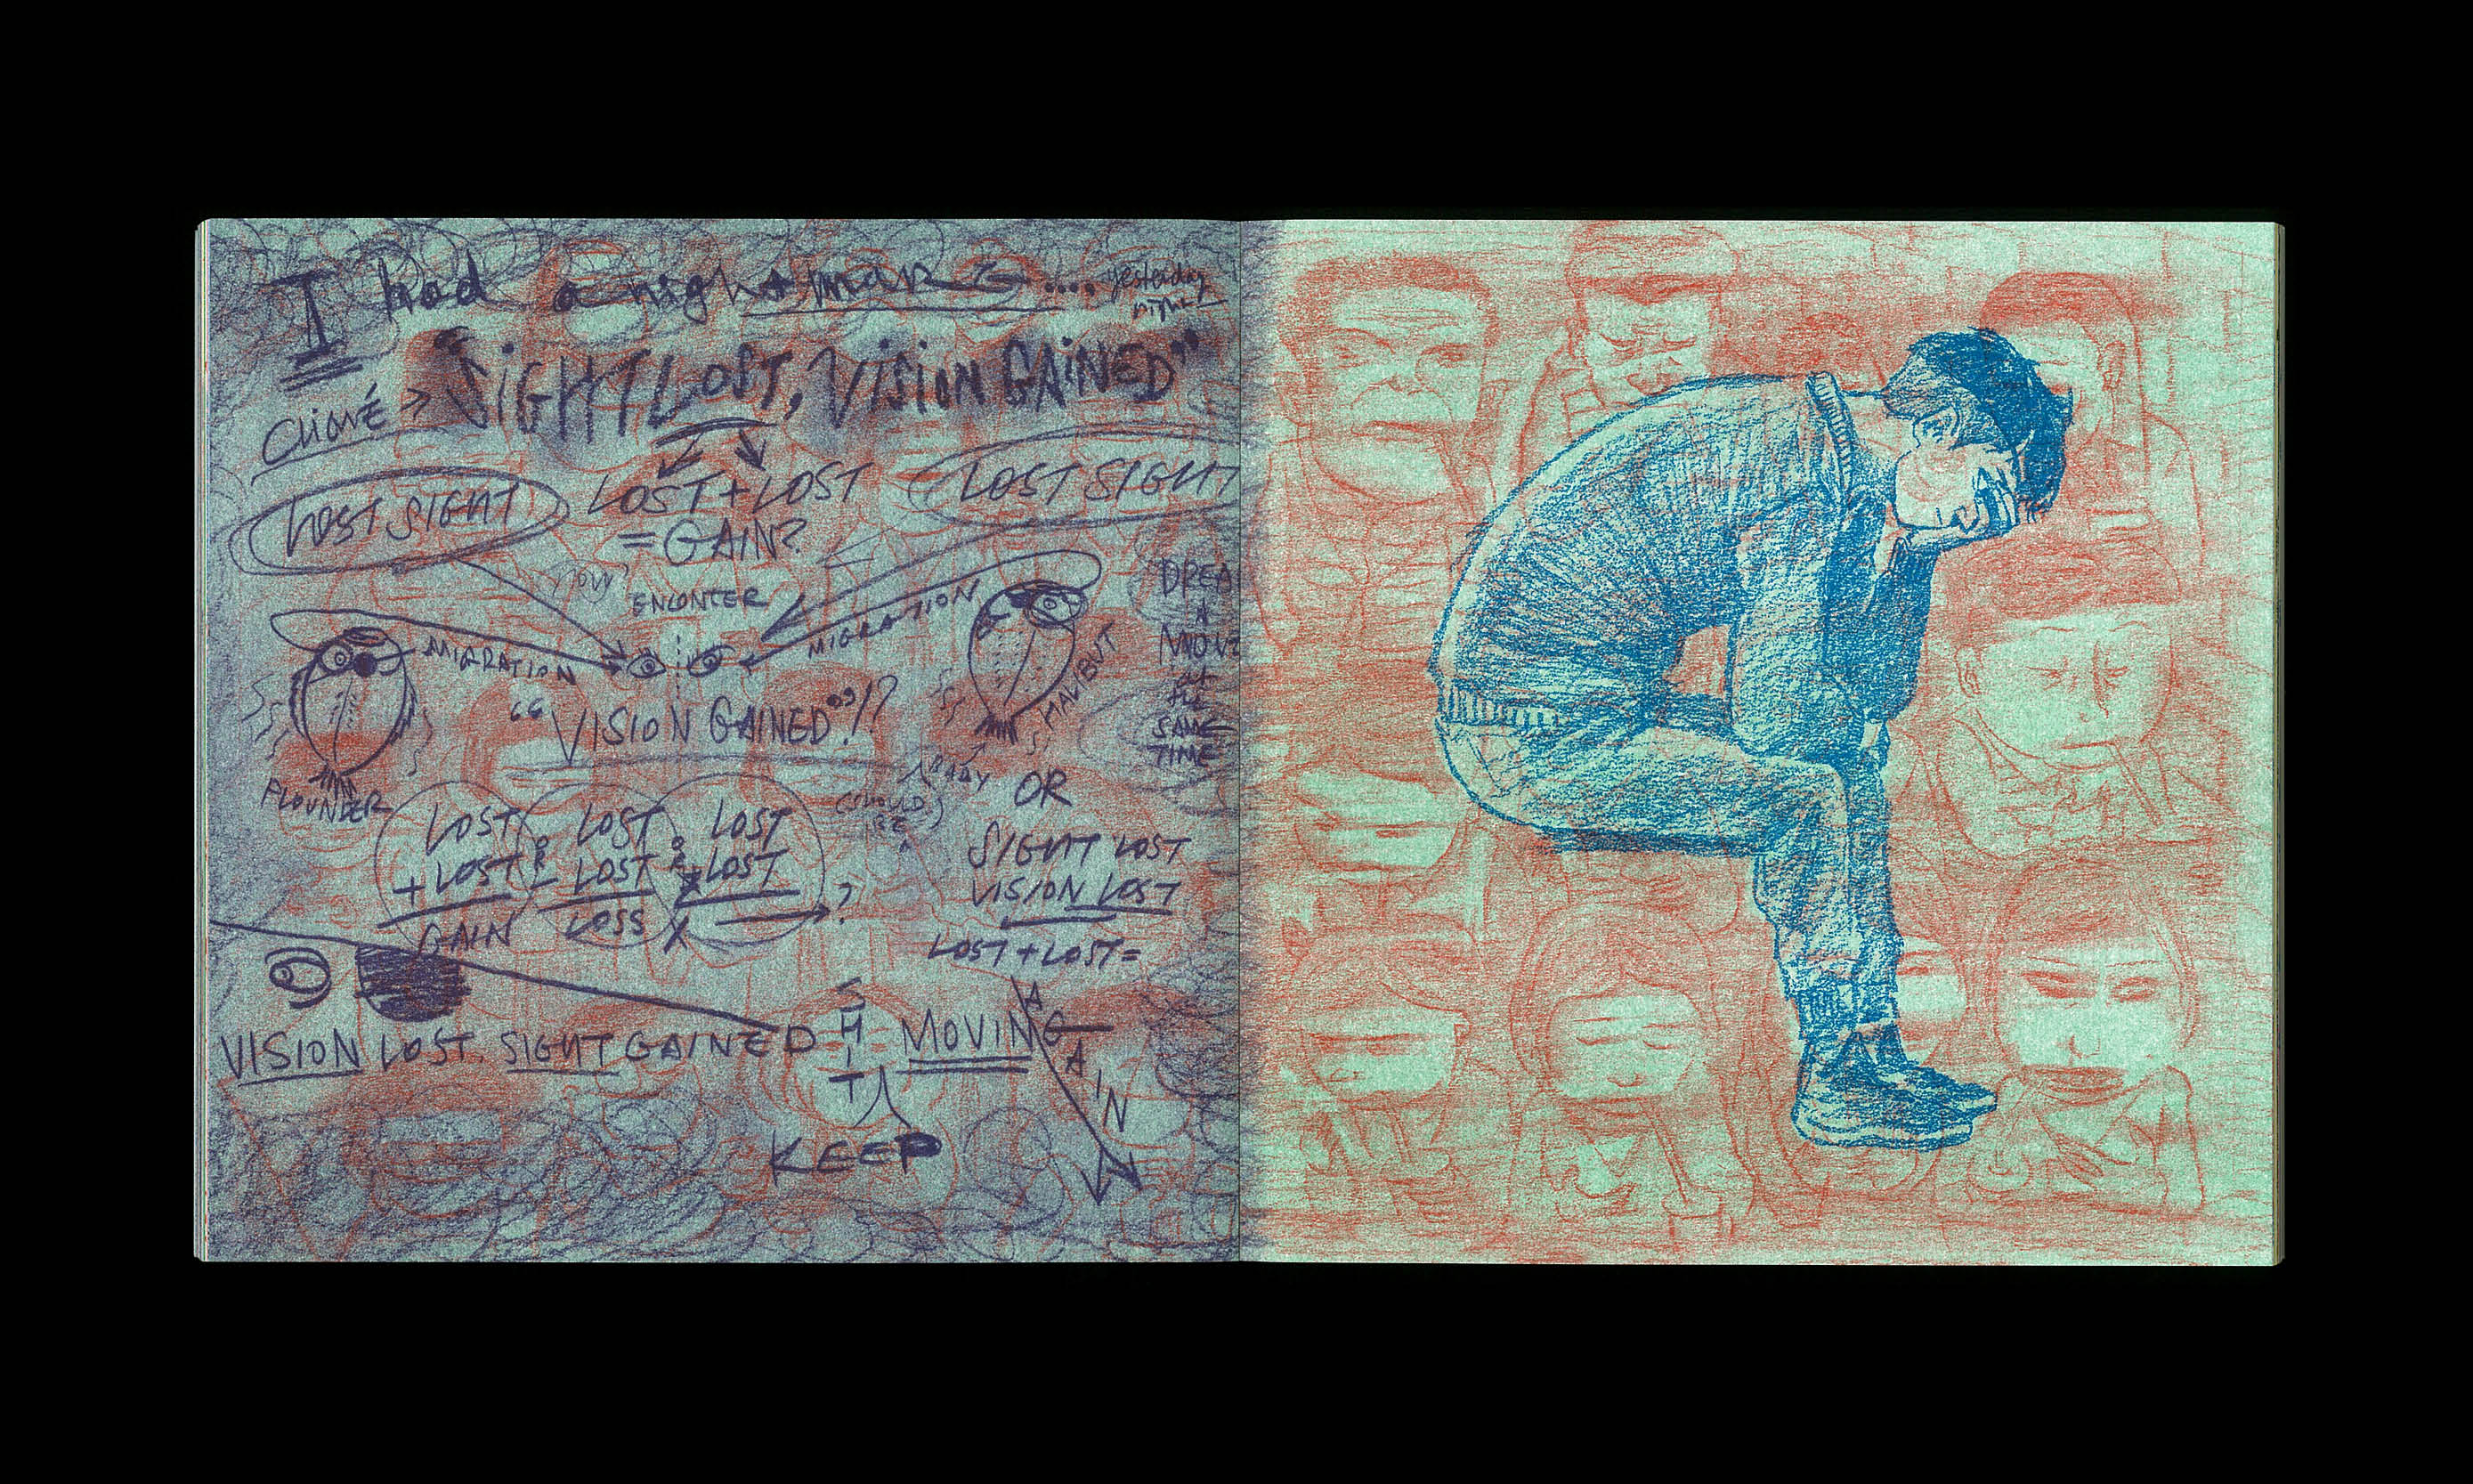 I had a nightmare.... yesterday night
CLICHÉ > "SIGHT LOST, VISION GAINED"
LOST SIGHT
LOST + LOST
= GAIN?
LOST SIGHT
now?
ENCONTER
MIGRATION
MIGRATION
DREA
A
MOVE
at
the
SAME
TIME
HALIBUT
FLOUNDER
"VISION GAINED"!?
LOST
+ LOST
GAIN
OR
LOST
- LOST
LOSS
OR
LOST
x LOST
X → ?
(SHOULD
BE)
OR
SIGHT LOST
VISION LOST
LOST + LOST =
AGAIN
VISION LOST, SIGHT GAINED
SHIT
KEEP
MOVING